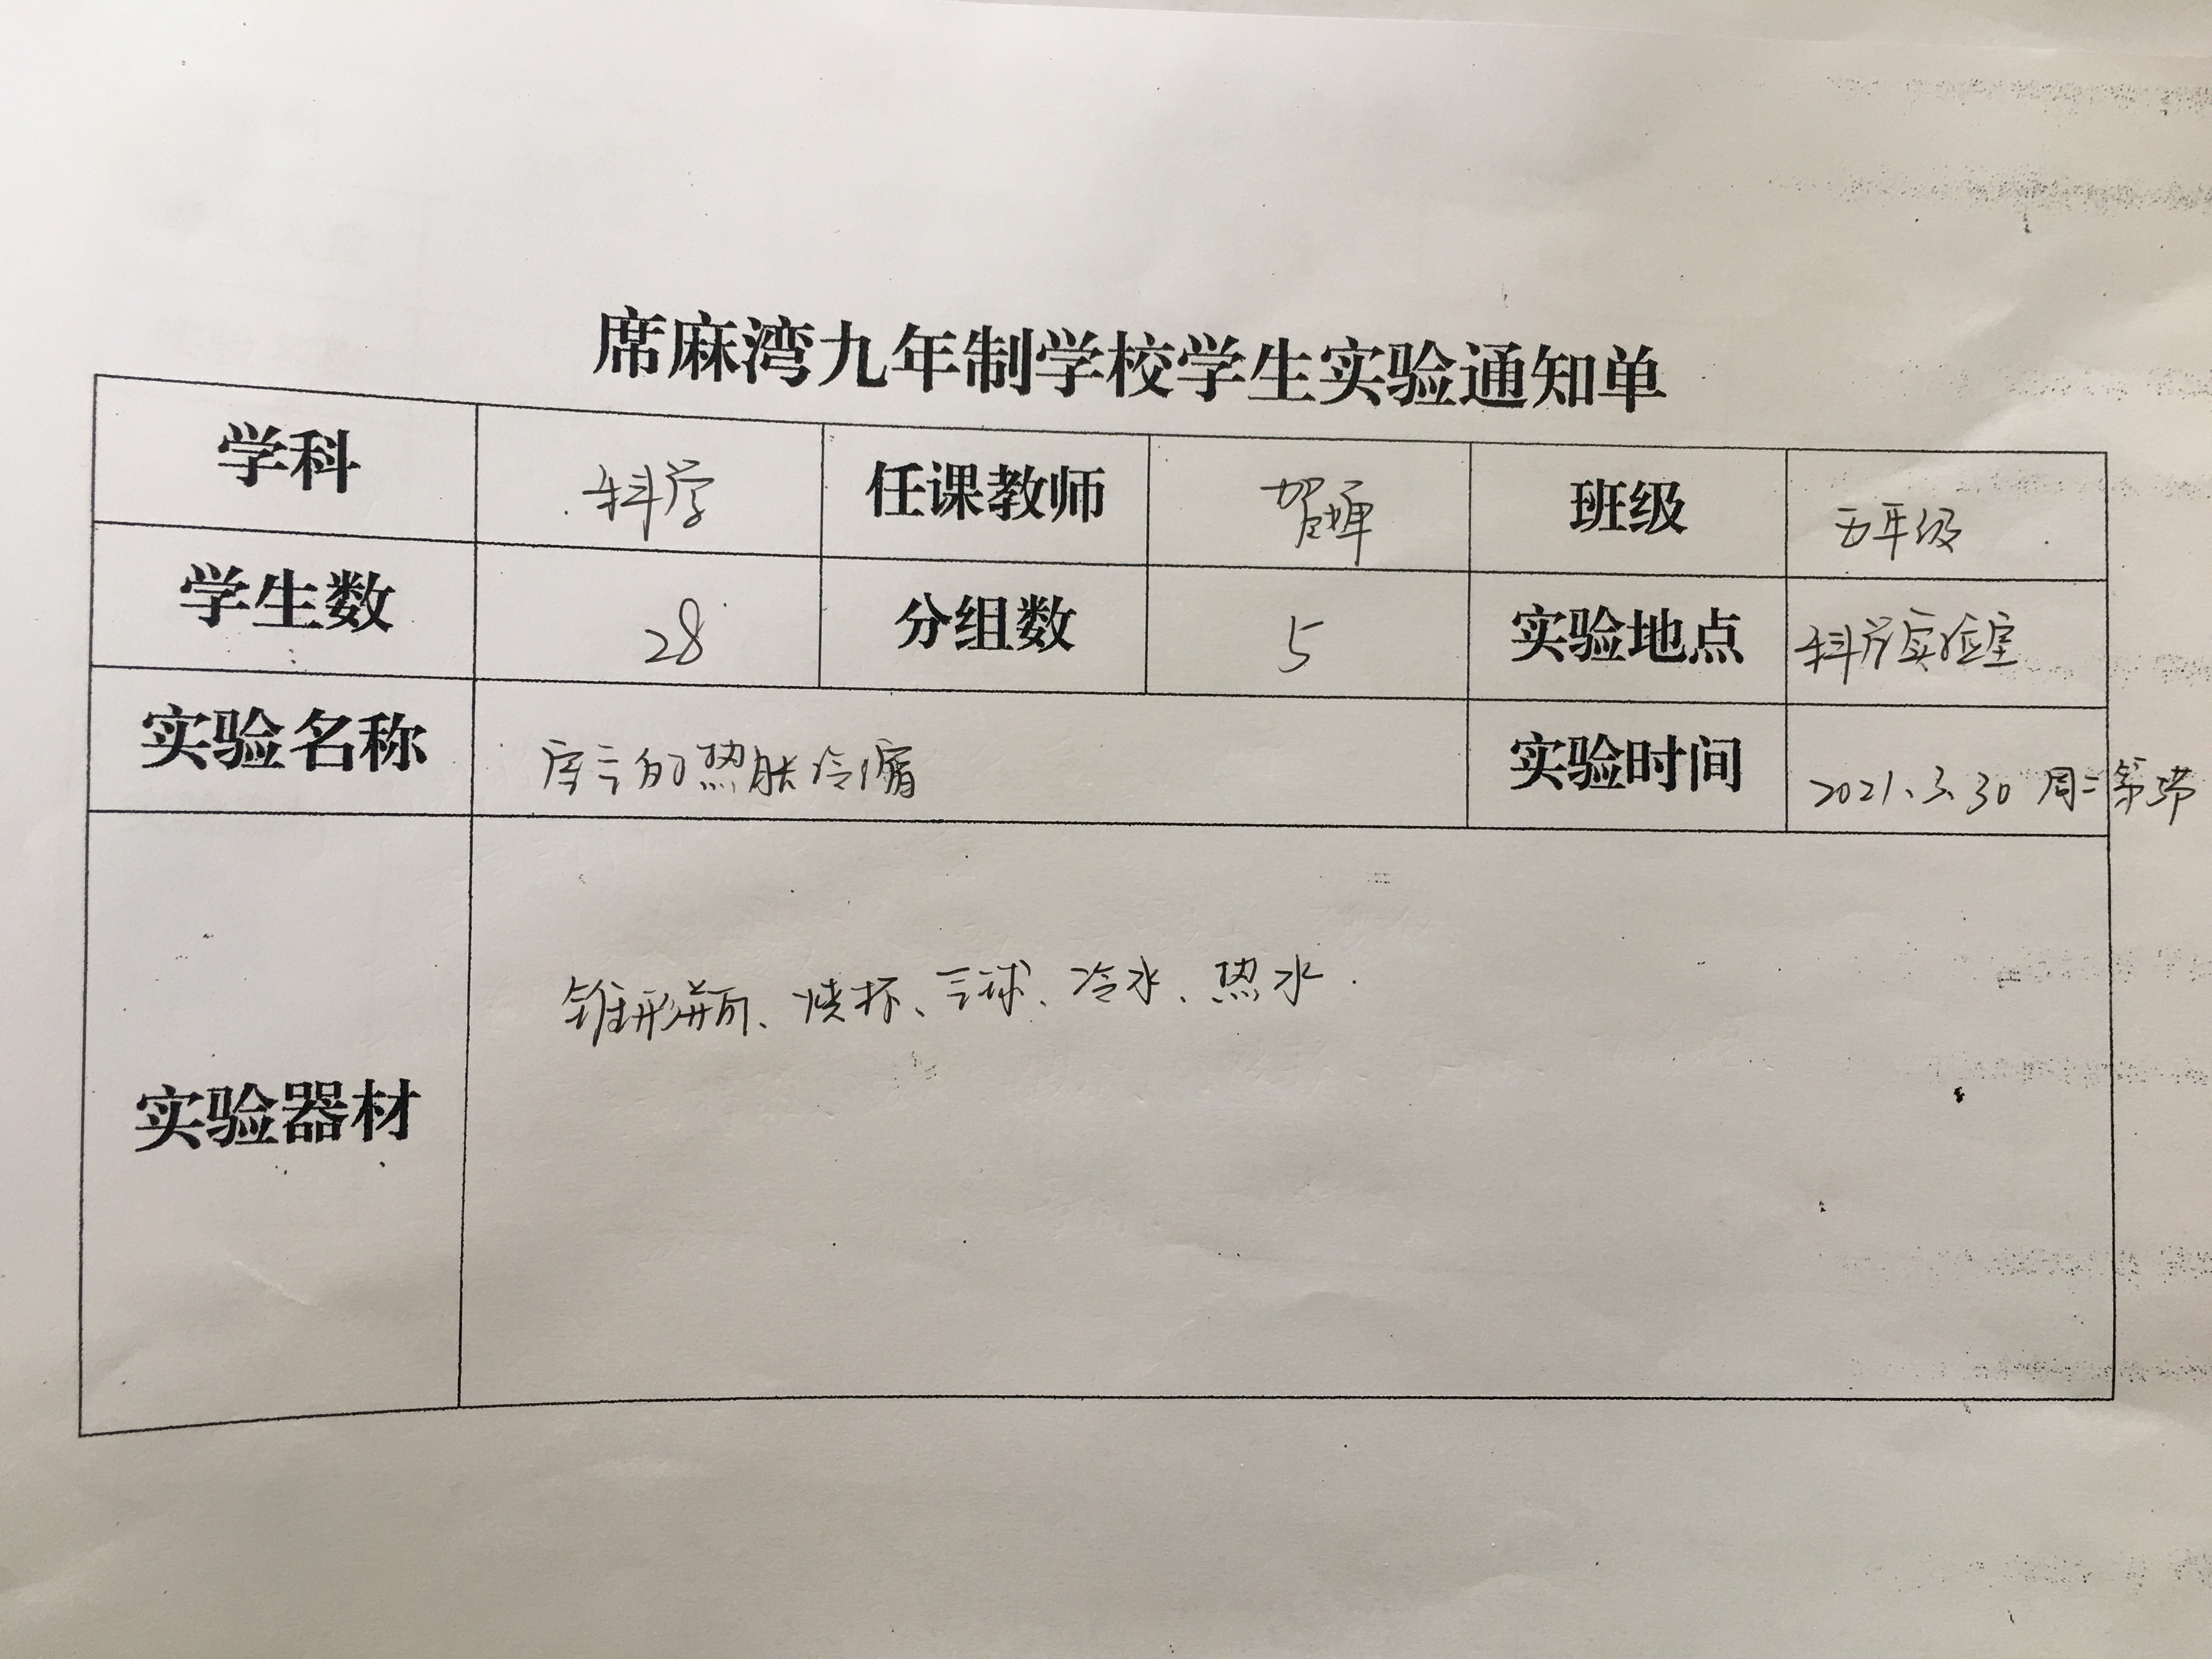 席麻湾九年制学校学生实验通知单
学科 科学 任课教师 班级 五年级
学生数 28 分组数 5 实验地点 科学实验室
实验名称 空气的热胀冷缩 实验时间 2021、3、30 周二第
实验器材 锥形瓶、烧杯、气球、冷水、热水.